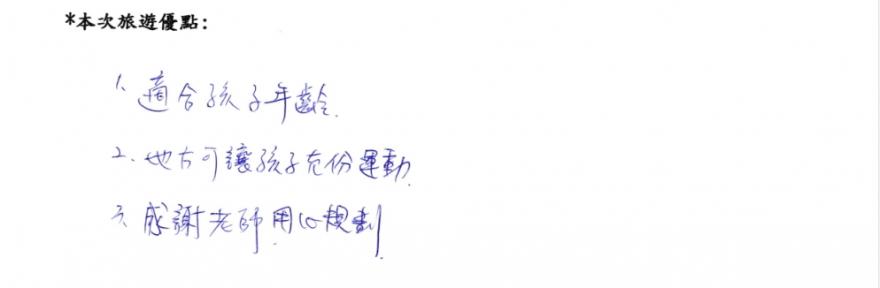 *本次旅遊優點:
1. 適合孩子年齡.
2. 地方可讓孩子充份運動.
3. 感謝老師用心規劃.